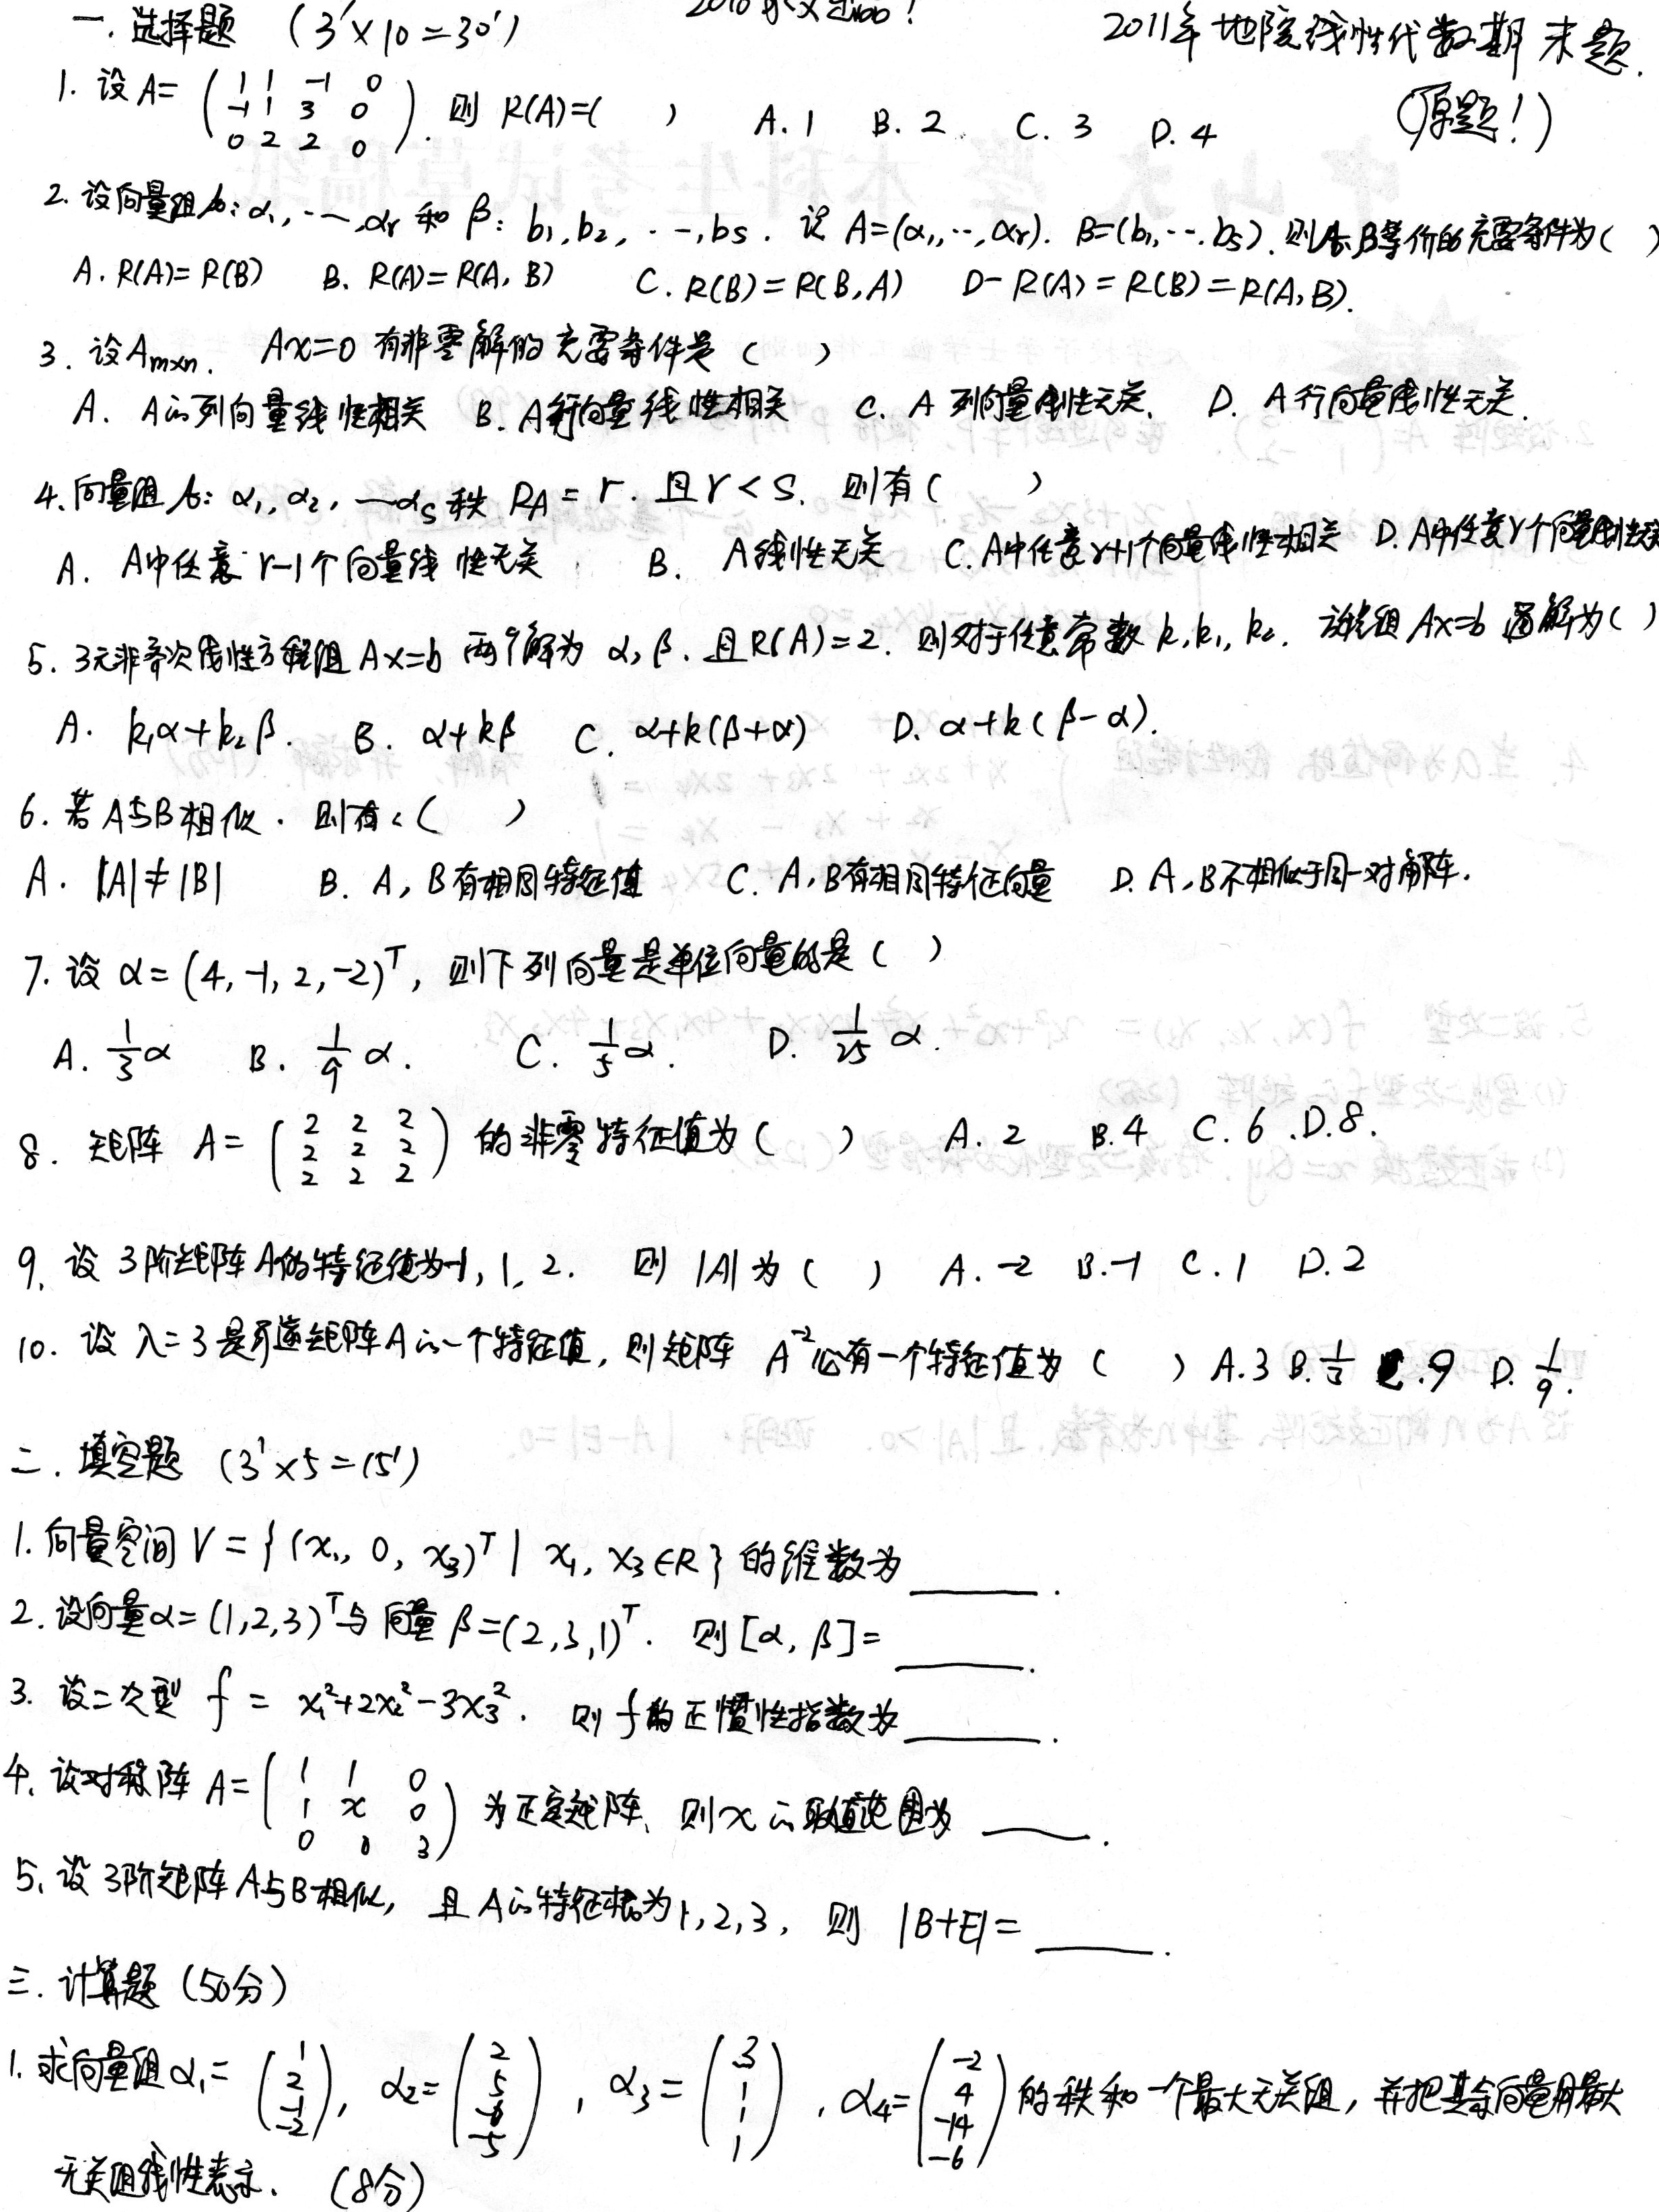 一. 选择题 (3'×10=30')
2011年地院线性代数期末题.
(原题!)
1. 设A= ( 1 1 -1 0 ; -1 1 3 0 ; 0 2 2 0 ). 则 R(A)=( ) A. 1 B. 2 C. 3 D. 4
2. 设向量组A: α₁, ⋯, αr 和 β: b₁, b₂, ⋯, bs. 记 A=(α₁, ⋯, αr). B=(b₁, ⋯, bs). 则A、B等价的充要条件为( )
A. R(A)=R(B) B. R(A)=R(A, B) C. R(B)=R(B, A) D- R(A)=R(B)=R(A,B).
3. 设Am×n. Ax=0 有非零解的充要条件是 ( )
A. A的列向量线性相关 B. A行向量线性相关 C. A列向量线性无关. D. A行向量线性无关.
4. 向量组A: α₁, α₂, —αs 秩 RA = r. 且 r < s. 则有( )
A. A中任意 r-1个向量线性无关 B. A线性无关 C. A中任意r+1个向量线性相关 D. A中任意r个向量线性无关
5. 3元非齐次线性方程组 Ax=b 两个解为 α, β. 且R(A)=2. 则对于任意常数 k, k₁, k₂. 方程组 Ax=b 通解为( )
A. k₁α+k₂β. B. α+kβ C. α+k(β+α) D. α+k(β-α).
6. 若A与B相似. 则有:( )
A. |A|≠|B| B. A, B有相同特征值 C. A, B有相同特征向量 D. A, B不相似于同一对角阵.
7. 设 α = (4, -1, 2, -2)ᵀ, 则下列向量是单位向量的是( )
A. 1/3 α B. 1/9 α. C. 1/5 α. D. 1/25 α.
8. 矩阵 A= ( 2 2 2 ; 2 2 2 ; 2 2 2 ) 的非零特征值为( ) A. 2 B. 4 C. 6 .D. 8.
9. 设 3阶矩阵A的特征值为-1, 1, 2. 则 |A| 为 ( ) A. -2 B. -1 C. 1 D. 2
10. 设 λ=3 是可逆矩阵A的一个特征值, 则矩阵 A⁻² 必有一个特征值为 ( ) A. 3 B. 1/3 C. 9 D. 1/9.
二. 填空题 (3'×5=15')
1. 向量空间 V = { (x₁, 0, x₃)ᵀ | x₁, x₃∈R } 的维数为 ______.
2. 设向量α=(1,2,3)ᵀ与向量 β=(2,3,1)ᵀ. 则 [α, β]= ______.
3. 设二次型 f = x₁²+2x₂²-3x₃². 则 f 的正惯性指数为 ______.
4. 设对称阵 A= ( 1 1 0 ; 1 x 0 ; 0 0 3 ) 为正定矩阵, 则x的取值范围为 ______.
5. 设3阶矩阵A与B相似, 且A的特征根为1, 2, 3, 则 |B+E|= ______.
三. 计算题 (50分)
1. 求向量组 α₁= ( 1 ; 2 ; -1 ; -2 ), α₂= ( 2 ; 5 ; -6 ; -5 ), α₃= ( 3 ; 1 ; 1 ; 1 ), α₄= ( -2 ; 4 ; -14 ; -6 ) 的秩和一个最大无关组, 并把其余向量用最大
无关组线性表示. (8分)